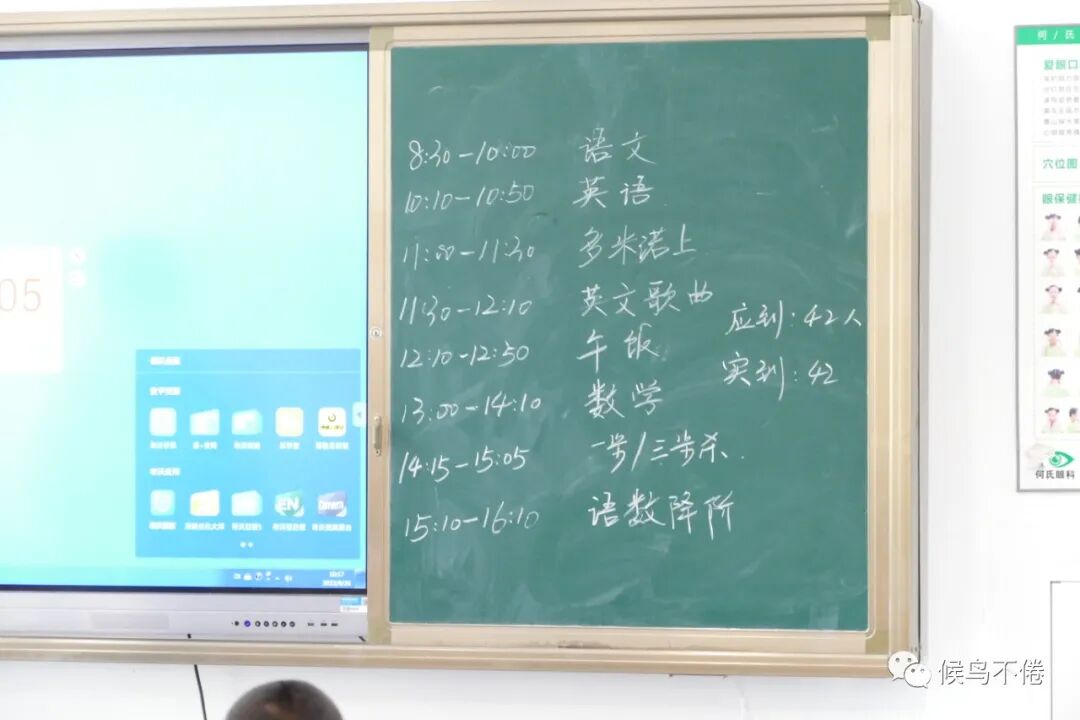 05
EN
8:30-10:00 语文
10:10-10:50 英语
11:00-11:30 多米诺上
11:30-12:10 英文歌曲
12:10-12:50 午饭
13:00-14:10 数学
14:15-15:05 一步/三步杀.
15:10-16:10 语数降阶
应到:42人
实到:42
何/氏
爱眼口
穴位图
眼保健
何氏眼科
候鸟不倦